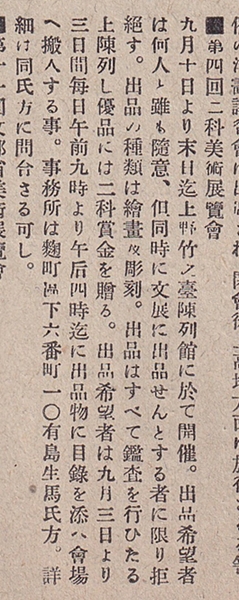 ■第四回二科美術展覽會
九月十日より末日迄上野竹之臺陳列館に於て開催。出品希望者
は何人と雖も隨意、但同時に文展に出品せんとする者に限り拒
絶す。出品の種類は繪畫及彫刻。出品はすべて鑑査を行ひたる
上陳列し優品には二科賞金を贈る。出品希望者は九月三日より
三日間每日午前九時より午后四時迄に出品物に目錄を添へ會場
へ搬入する事。事務所は麴町區下六番町一〇有島生馬氏方。詳
細は同氏方に問合さる可し。